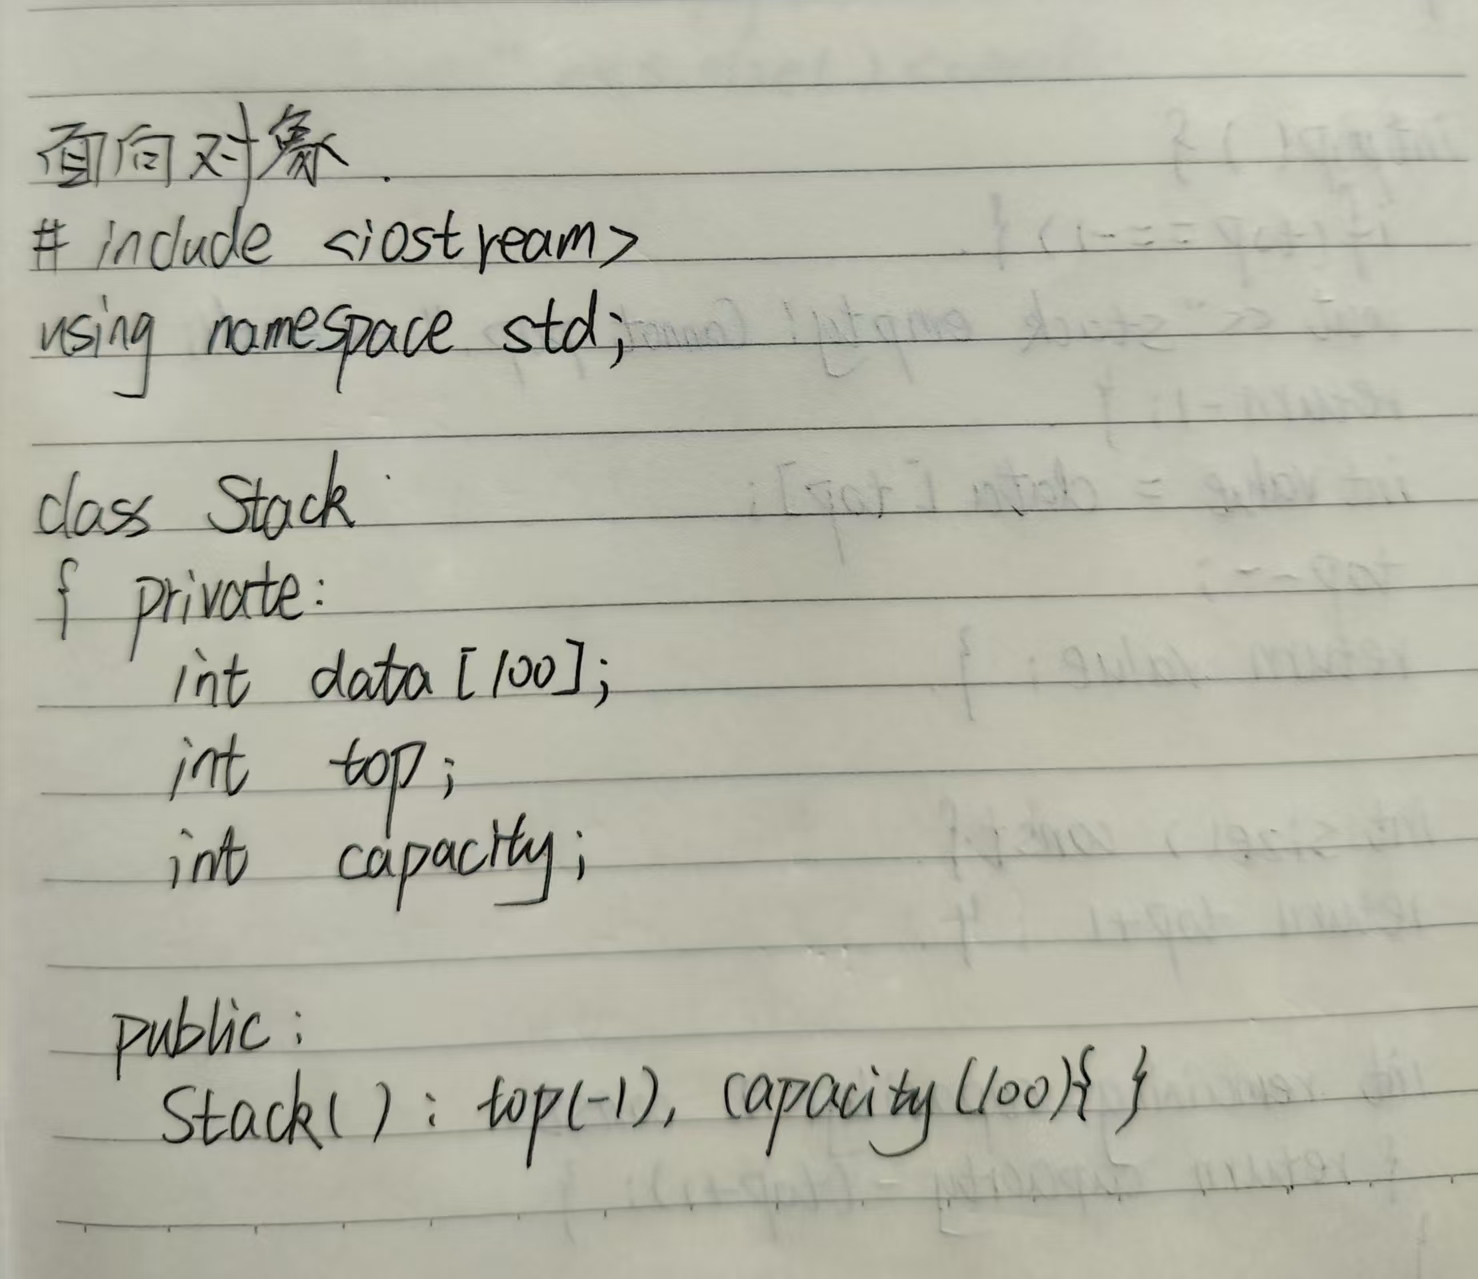 面向对象.
# include <iostream>
using namespace std;
class Stack
{ private:
int data [100];
int top;
int capacity;
public:
Stack() : top(-1), capacity (100){ }